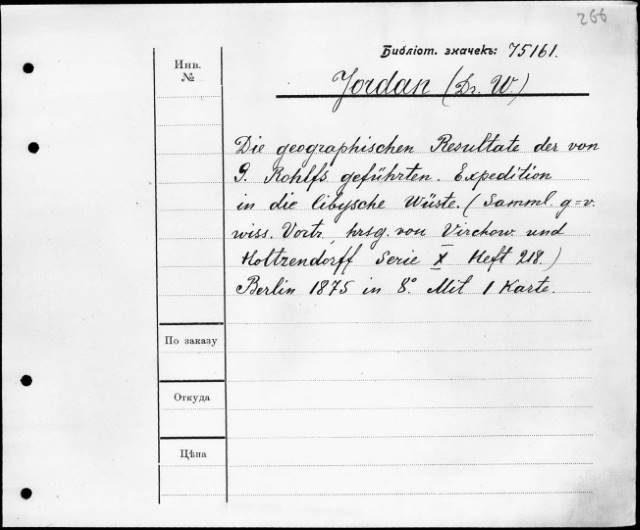 266
Библіот. значекъ: 75161.
Инв.
№
Jordan (Dr. W.)
Die geographischen Resultate der von
G. Rohlfs geführten. Expedition
in die libysche Wüste. (Samml. g=v.
wiss. Vortr, hrsg. von Virchow und
Holtzendorff Serie X Heft 218.)
Berlin 1875 in 8° Mit 1 Karte.
По заказу
Откуда
Цѣна